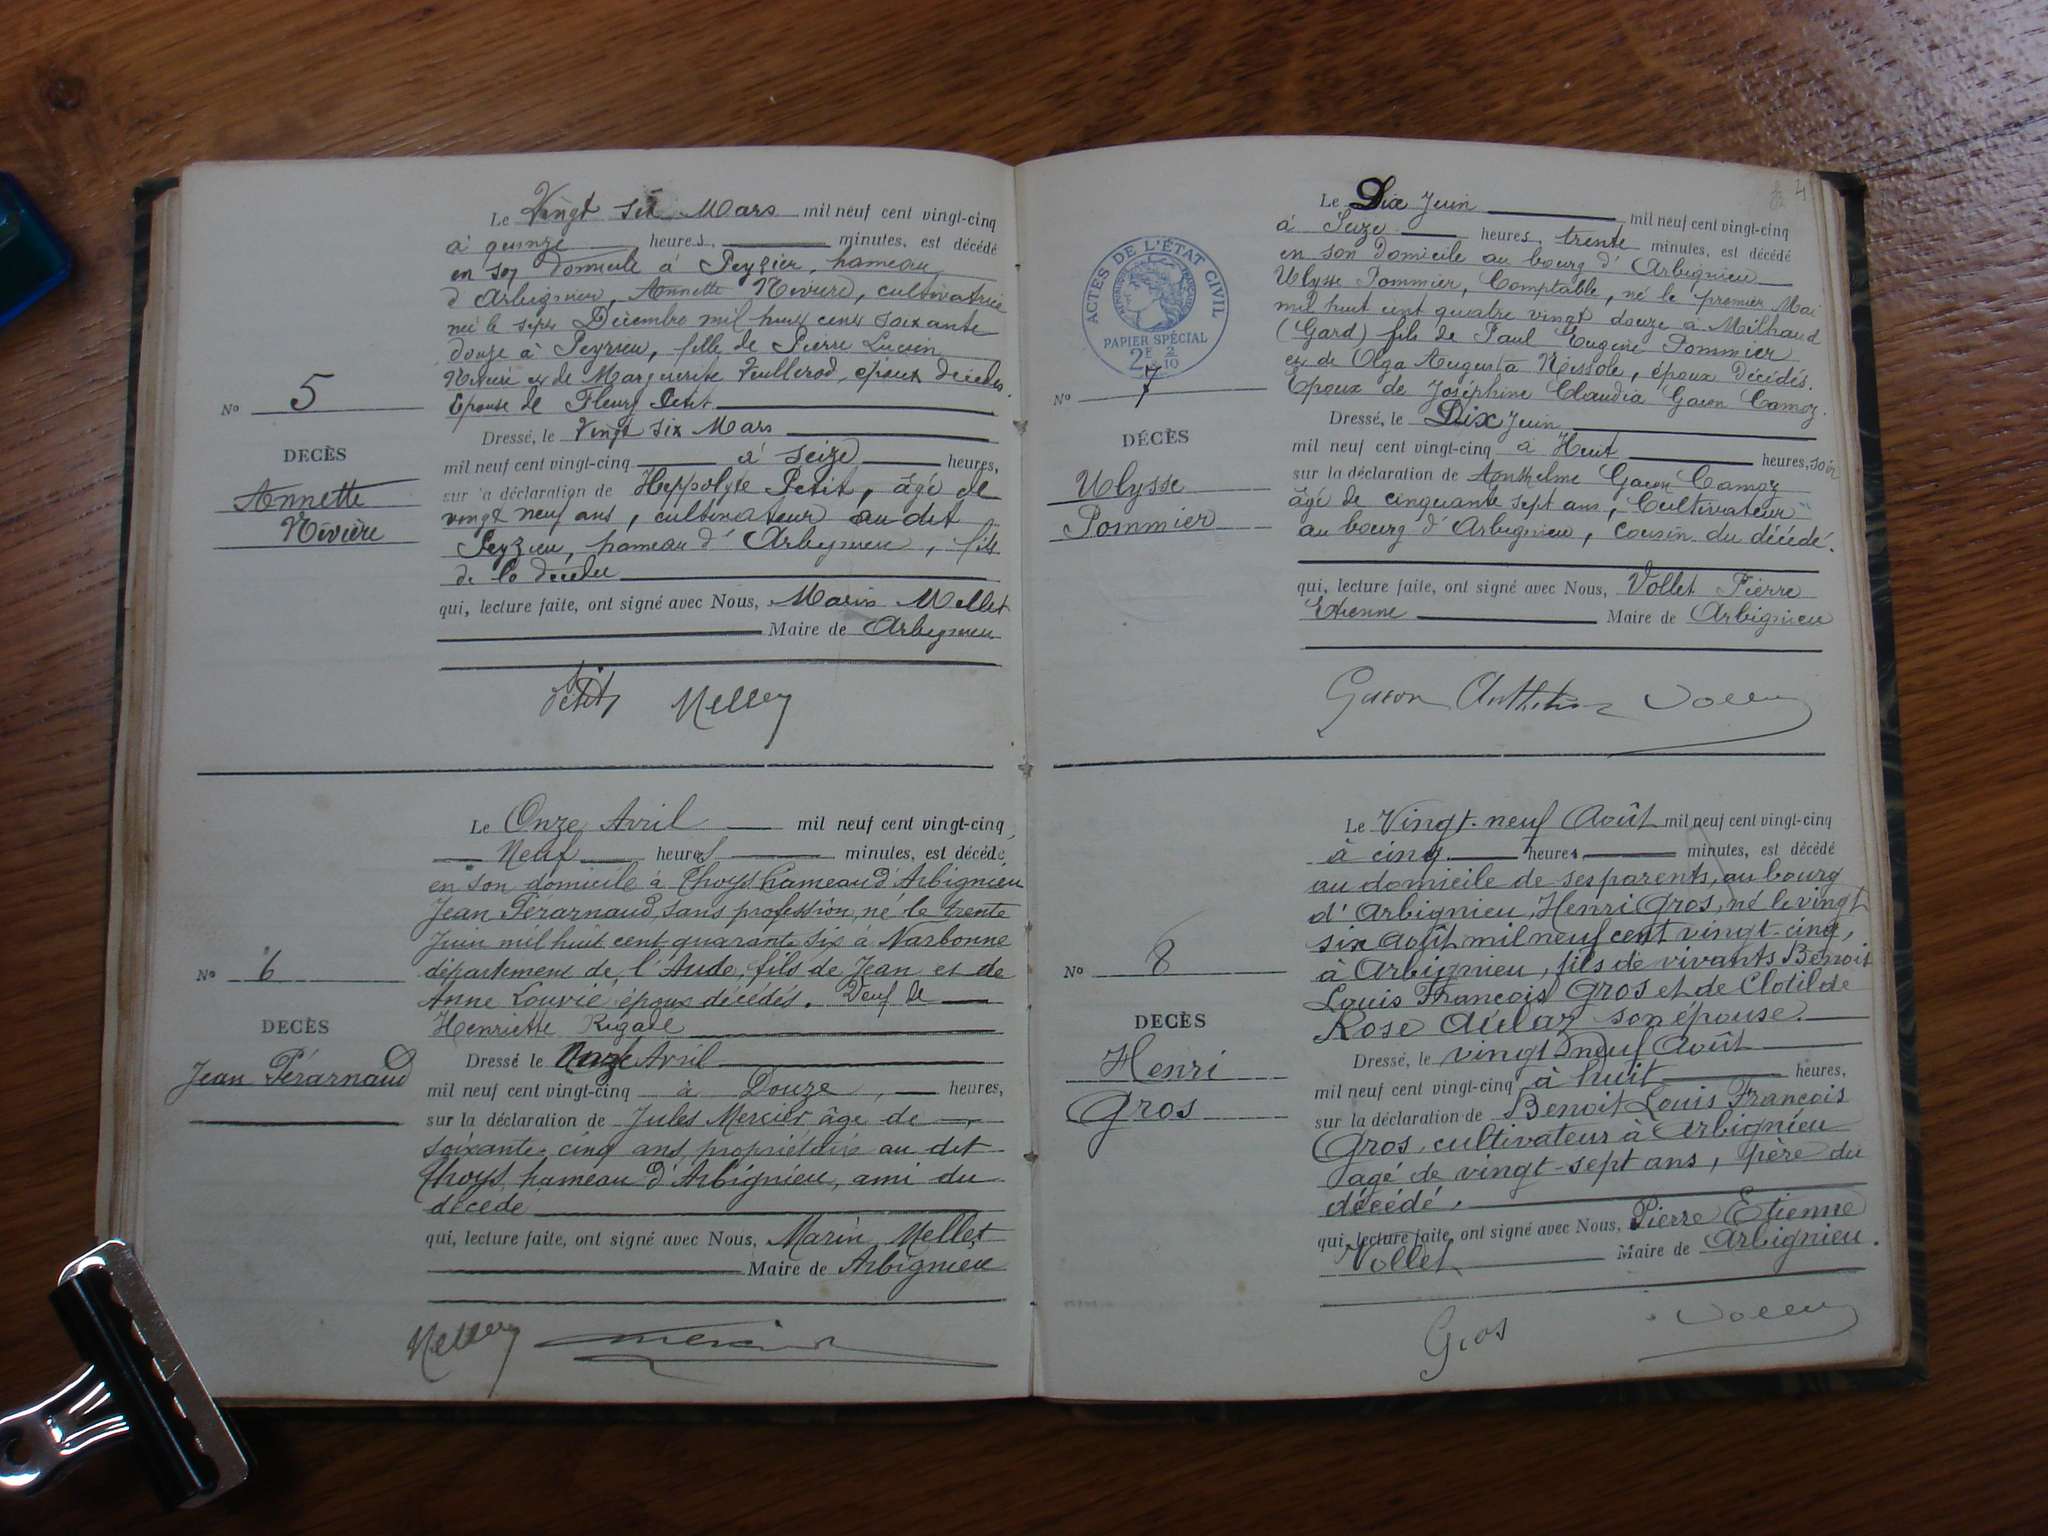 Le Vingt six Mars mil neuf cent vingt-cinq
à quinze heures, minutes, est décédé
en son domicile à Peyzieu, hameau
d'Arbignieu, Annette Nivière, cultivatrice
née le sept Décembre mil huit cent soixante
douze à Peyrieu, fille de Pierre Lucien
Nivière et de Marguerite Veullerod, époux décédés.
Epouse de Fleury Petit
No 5
DECÈS
Annette
Nivière
Dressé, le Vingt six Mars
mil neuf cent vingt-cinq à seize heures,
sur la déclaration de Hippolyte Petit, âgé de
vingt neuf ans, cultivateur au dit
Peyzieu, hameau d'Arbignieu, fils
de la décédée
qui, lecture faite, ont signé avec Nous, Marin Mellet
Maire de Arbignieu
Petit Mellet
Le Onze Avril mil neuf cent vingt-cinq,
Neuf heures minutes, est décédé
en son domicile à Thoys hameau d'Arbignieu
Jean Pérarnaud, sans profession, né le trente
Juin mil huit cent quarante six à Narbonne
département de l'Aude, fils de Jean et de
Anne Louvié, époux décédés. Veuf de
Henriette Rigale
No 6
DECÈS
Jean Pérarnaud
Dressé le Onze Avril
mil neuf cent vingt-cinq à Douze, heures,
sur la déclaration de Jules Mercier, âgé de
soixante-cinq ans, propriétaire au dit
Thoys hameau d'Arbignieu, ami du
décédé
qui, lecture faite, ont signé avec Nous, Marin Mellet
Maire de Arbignieu
Mellet Mercier
4
Le Dix Juin mil neuf cent vingt-cinq
à Seize heures, trente minutes, est décédé
en son domicile au bourg d'Arbignieu
Ulysse Pommier, Comptable, né le premier Mai
mil huit cent quatre vingt douze à Milhaud
(Gard) fils de Paul Eugène Pommier
et de Olga Augusta Nissole, époux décédés.
Epoux de Joséphine Claudia Gacon Camoz.
ACTES DE L'ÉTAT CIVIL
PAPIER SPÉCIAL
2F 2/10
No 7
DÉCÈS
Ulysse
Pommier
Dressé, le Dix Juin
mil neuf cent vingt-cinq à Huit heures, soir
sur la déclaration de Anthelme Gacon Camoz
âgé de cinquante sept ans, Cultivateur
au bourg d'Arbignieu, cousin du décédé.
qui, lecture faite, ont signé avec Nous, Vollet Pierre
Etienne Maire de Arbignieu
Gacon Anthelme Vollet
Le Vingt-neuf Août mil neuf cent vingt-cinq
à cinq heures minutes, est décédé
au domicile de ses parents, au bourg
d'Arbignieu, Henri Gros, né le vingt
six Août mil neuf cent vingt-cinq,
à Arbignieu, fils de vivants Benoit
Louis François Gros et de Clotilde
Rose Aulaz son épouse.
No 8
DECÈS
Henri
Gros
Dressé, le vingt neuf Août
mil neuf cent vingt-cinq à huit heures,
sur la déclaration de Benoit Louis François
Gros, cultivateur à Arbignieu
âgé de vingt-sept ans, père du
décédé.
qui, lecture faite, ont signé avec Nous, Pierre Etienne
Vollet Maire de Arbignieu.
Gros Vollet